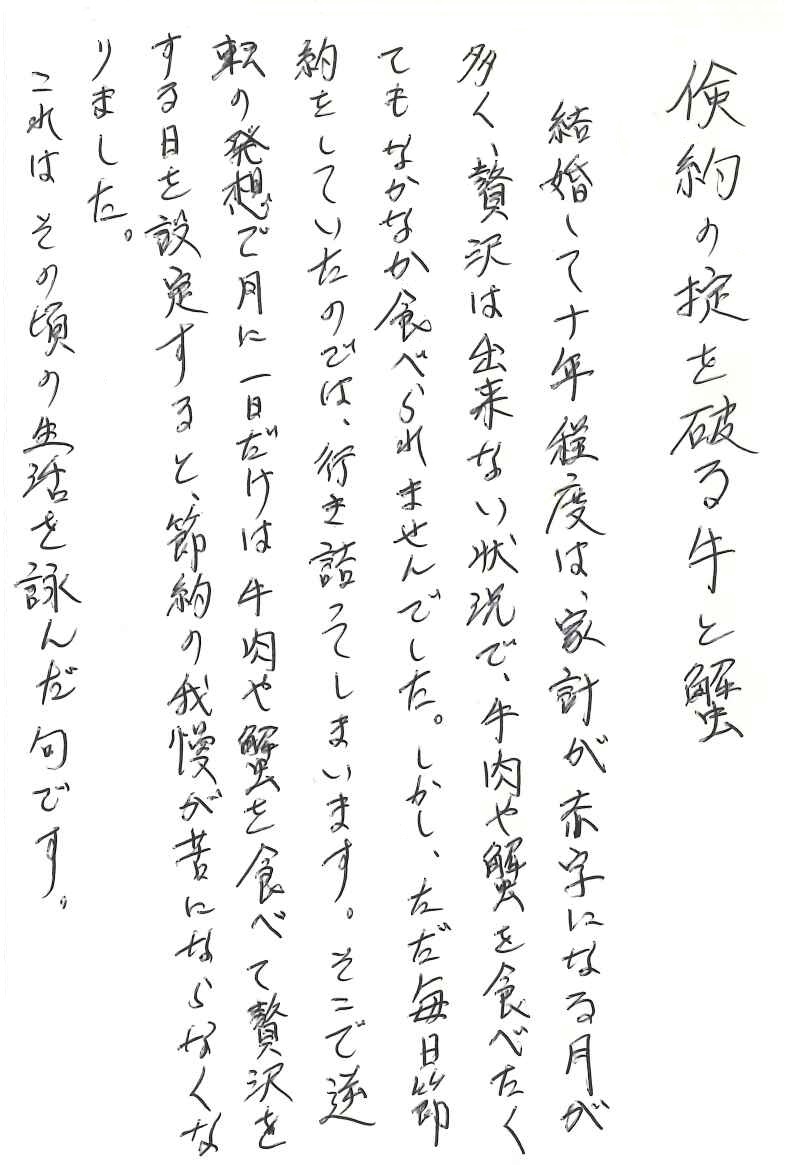 倹約の掟を破る牛と蟹
結婚して十年程度は、家計が赤字になる月が
多く、贅沢は出来ない状況で、牛肉や蟹を食べたく
てもなかなか食べられませんでした。しかし、ただ毎日節
約をしていたのでは、行き詰ってしまいます。そこで逆
転の発想で月に一日だけは牛肉や蟹を食べて贅沢を
する日を設定すると、節約の我慢が苦にならなくな
りました。
これはその頃の生活を詠んだ句です。